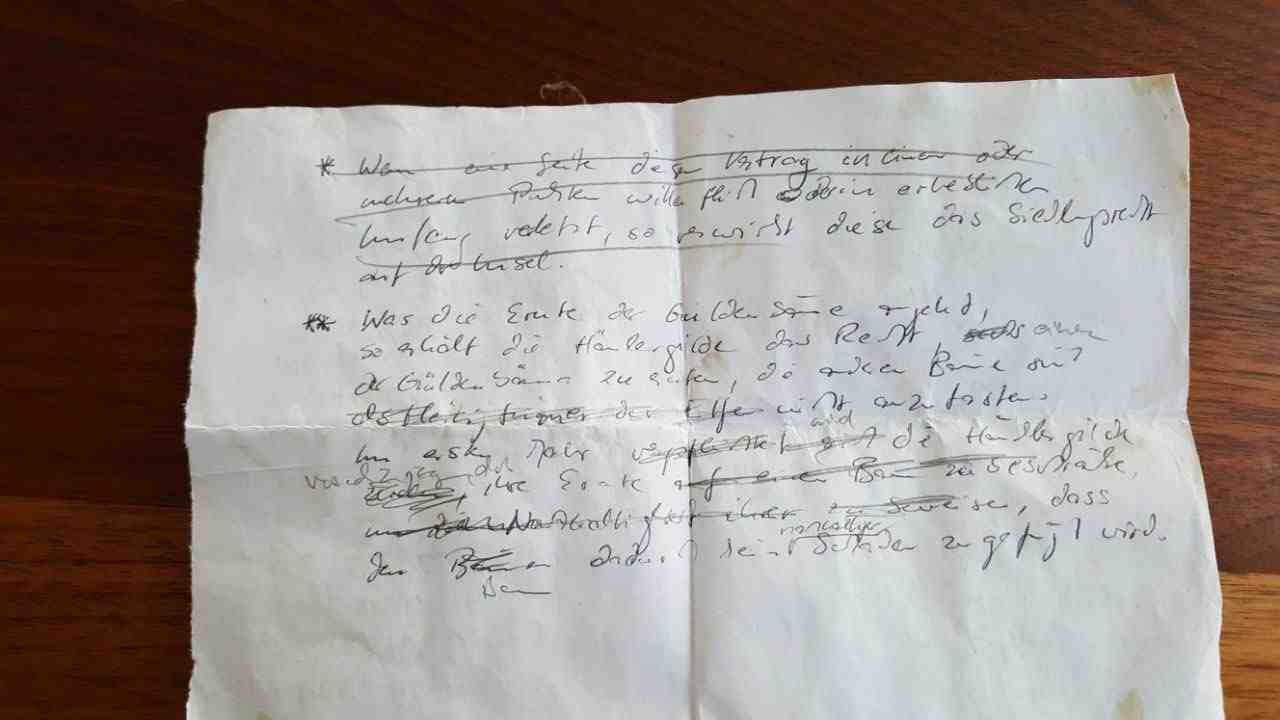 * Wenn eine Seite diesen Vertrag in einem oder
mehreren Punkten willentlich oder in erheblichem
Umfang verletzt, so verwirkt diese das Siedlungsrecht
auf der Insel.
** Was die Ernte der Güldenbäume angeht,
so erhält die Händlergilde das Recht einen
der Güldenbäume zu ernten, die anderen Bäume sind
als Heiligtümer der Elfen nicht anzutasten.
Im ersten Jahr wird die Händlergilde
ihre Ernte auf einen Baum zu beschränken,
um die Nachhaltigkeit ihrer zu beweisen, dass
dem Baum dadurch kein Schaden zugefügt wird.